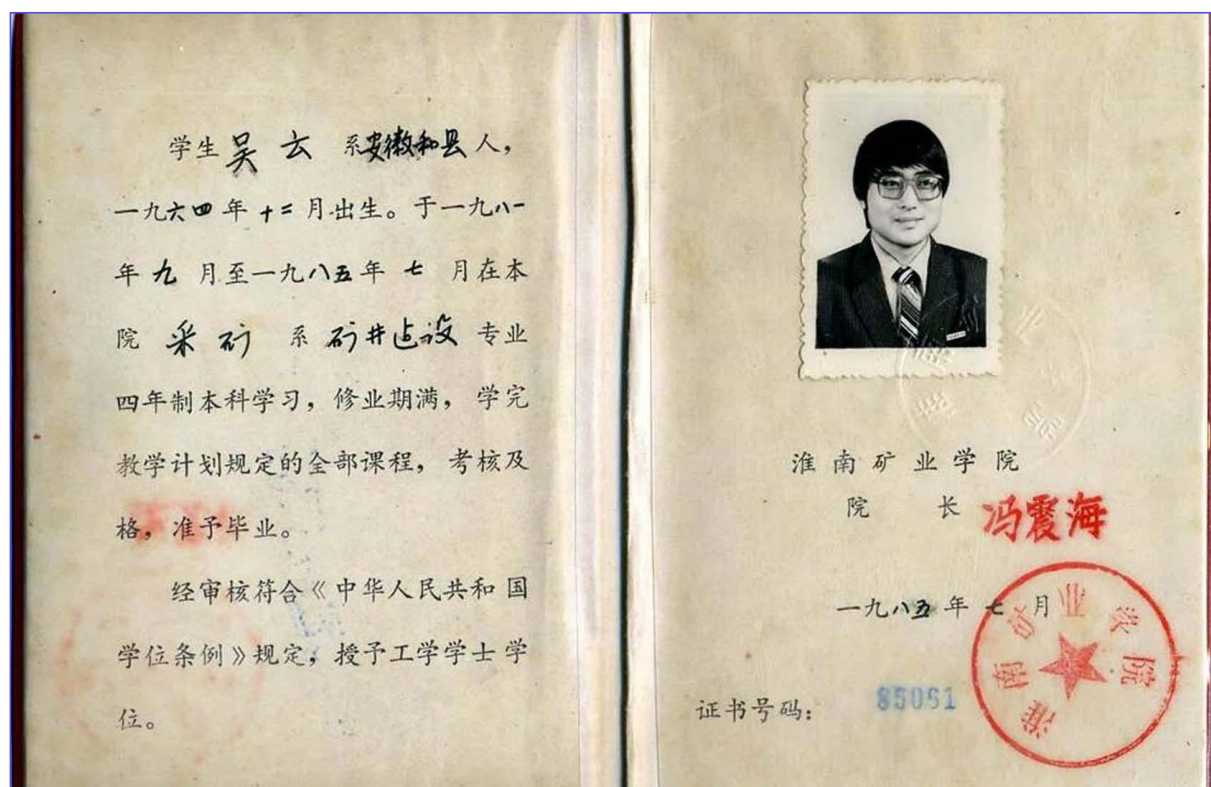 学生吴云系安徽和县人，
一九六四年十二月出生。于一九八一
年九月至一九八五年七月在本
院采矿系矿井建设专业
四年制本科学习，修业期满，学完
教学计划规定的全部课程，考核及
格，准予毕业。
经审核符合《中华人民共和国
学位条例》规定，授予工学学士学
位。
淮南矿业学院
院长 冯震海
一九八五年七月
淮南矿业学院
证书号码： 85061